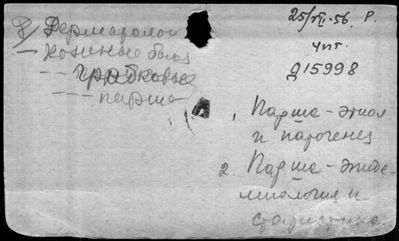 Дерматолог
— кожные бол
— — грибковые
— — — парша
25/VII-56. Р.
Чит.
Д15998
1. Парша - этиол
и патогенез
2. Парша - эпиде-
миология и
статистика